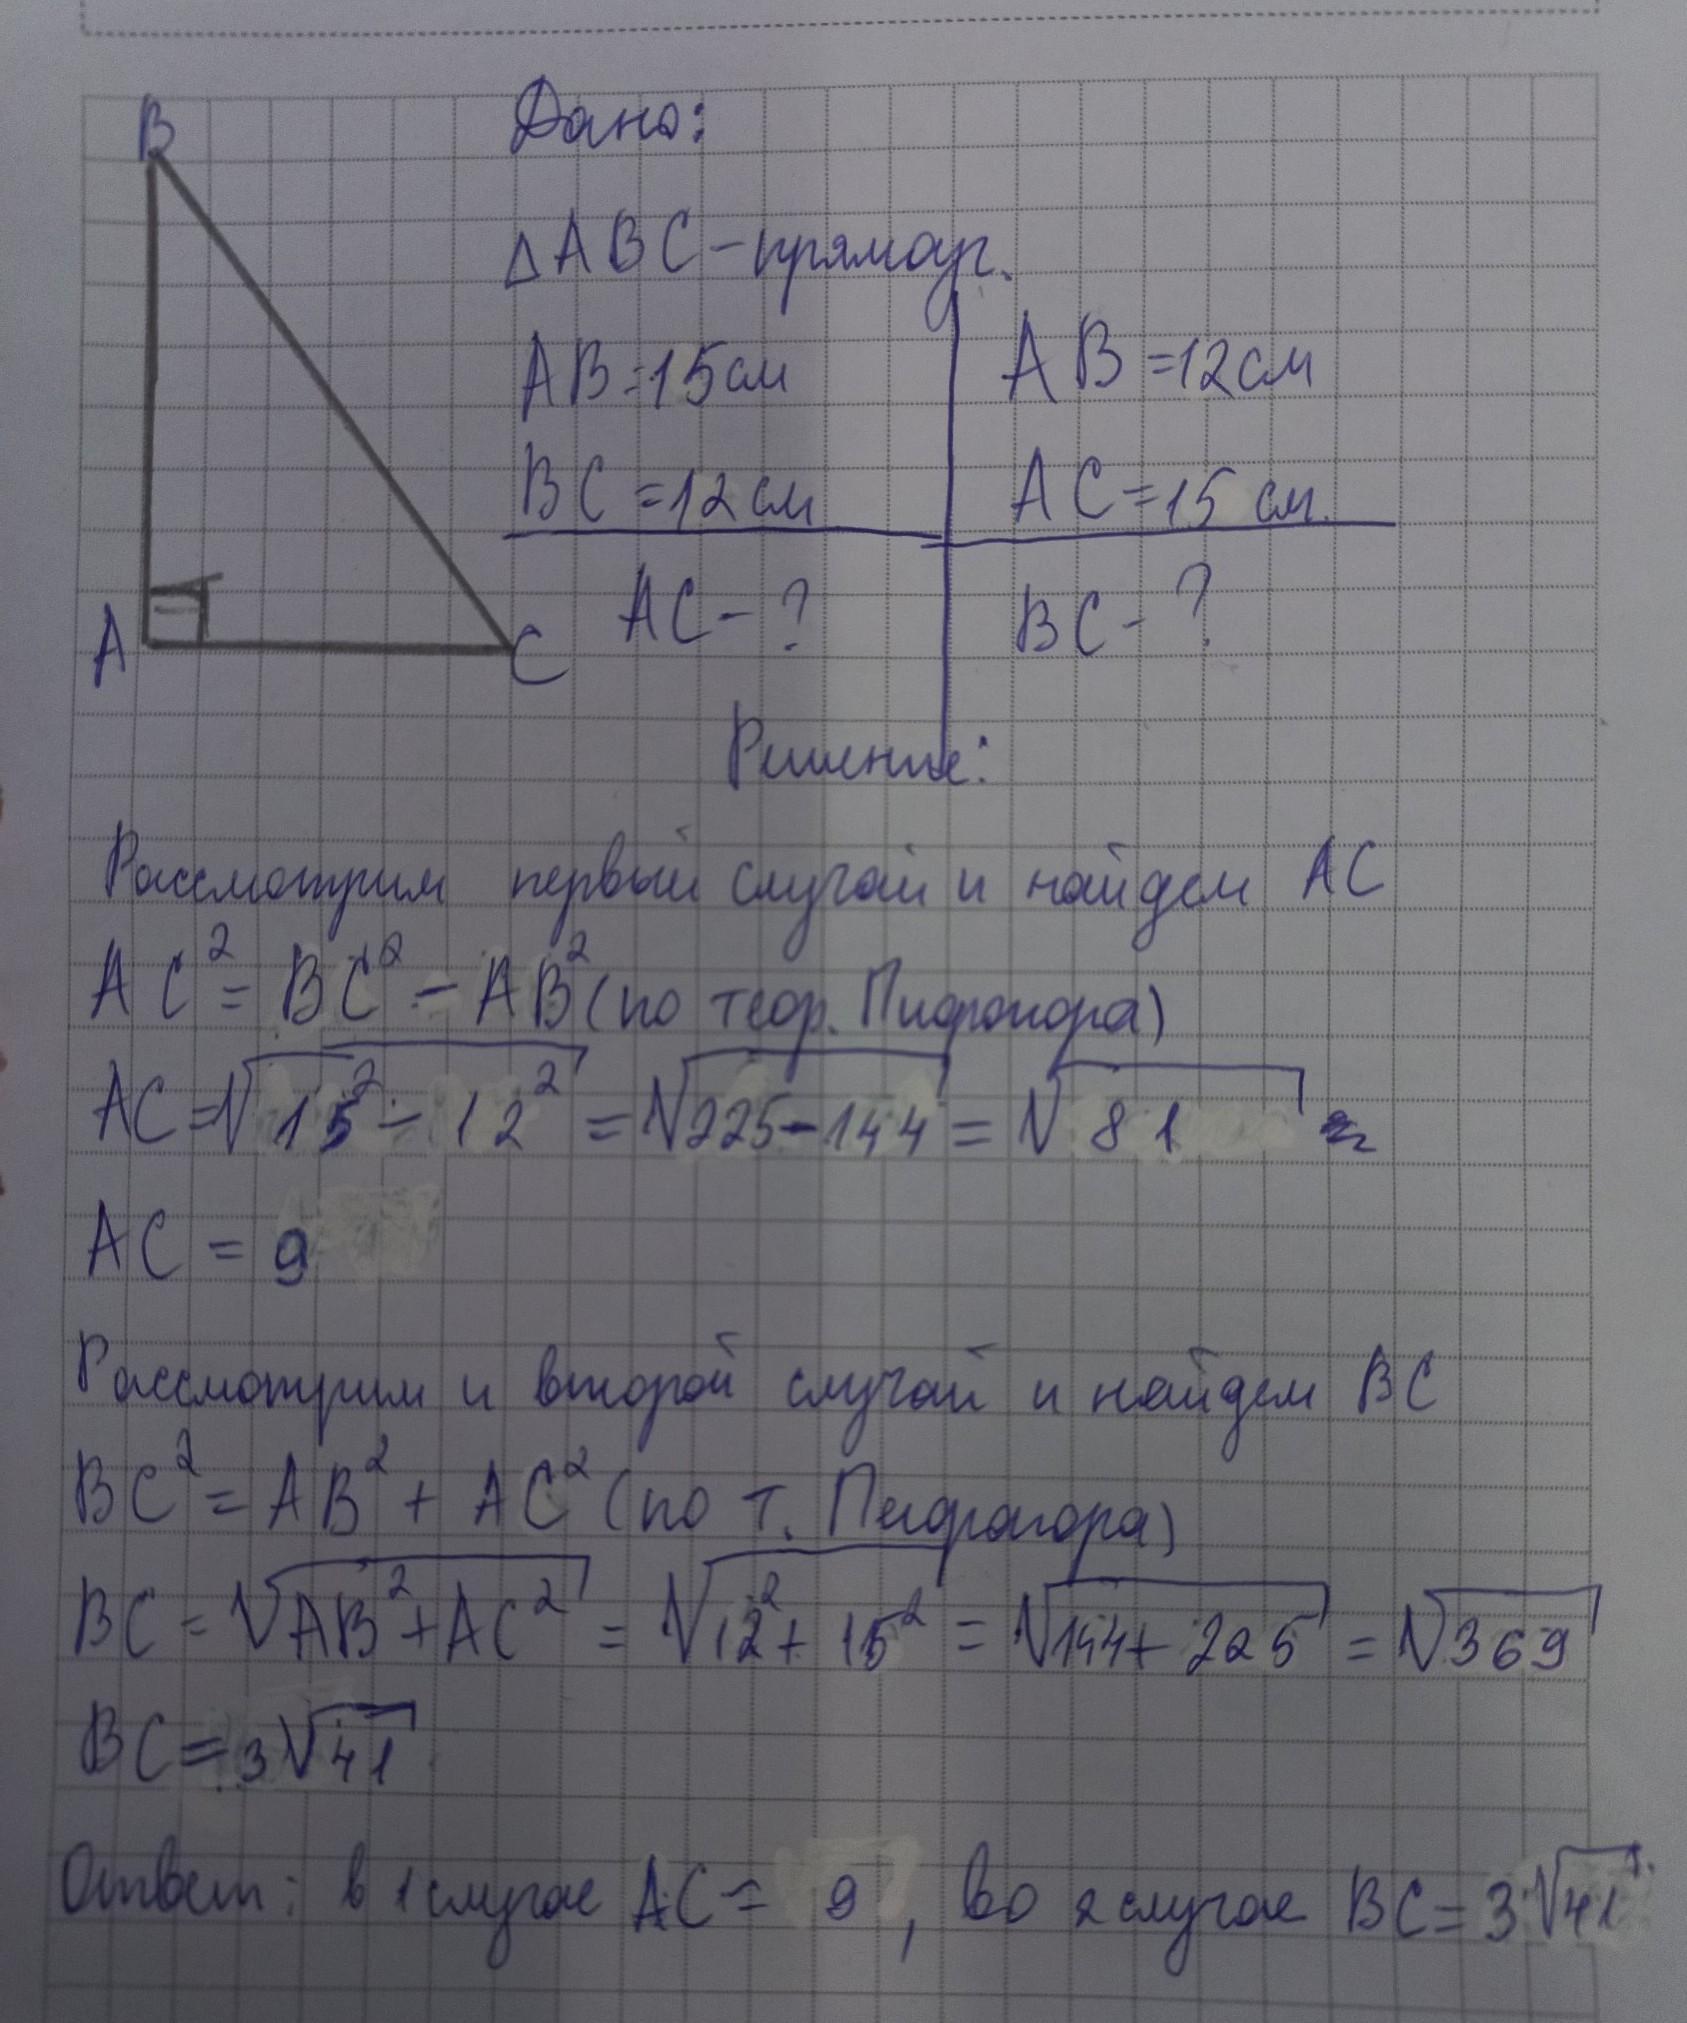 B
Дано:
△ABC - прямоуг.
AB = 15 см
AB = 12 см
BC = 12 см
AC = 15 см.
A
C
AC - ?
BC - ?
Решение:
Рассмотрим первый случай и найдем AC
AC² = BC² - AB² (по теор. Пифагора)
AC = √15² - 12² = √225 - 144 = √81
AC = 9
Рассмотрим и второй случай и найдем BC
BC² = AB² + AC² (по т. Пифагора)
BC = √AB² + AC² = √12² + 15² = √144 + 225 = √369
BC = 3√41
Ответ: в 1 случае AC = 9, во 2 случае BC = 3√41.